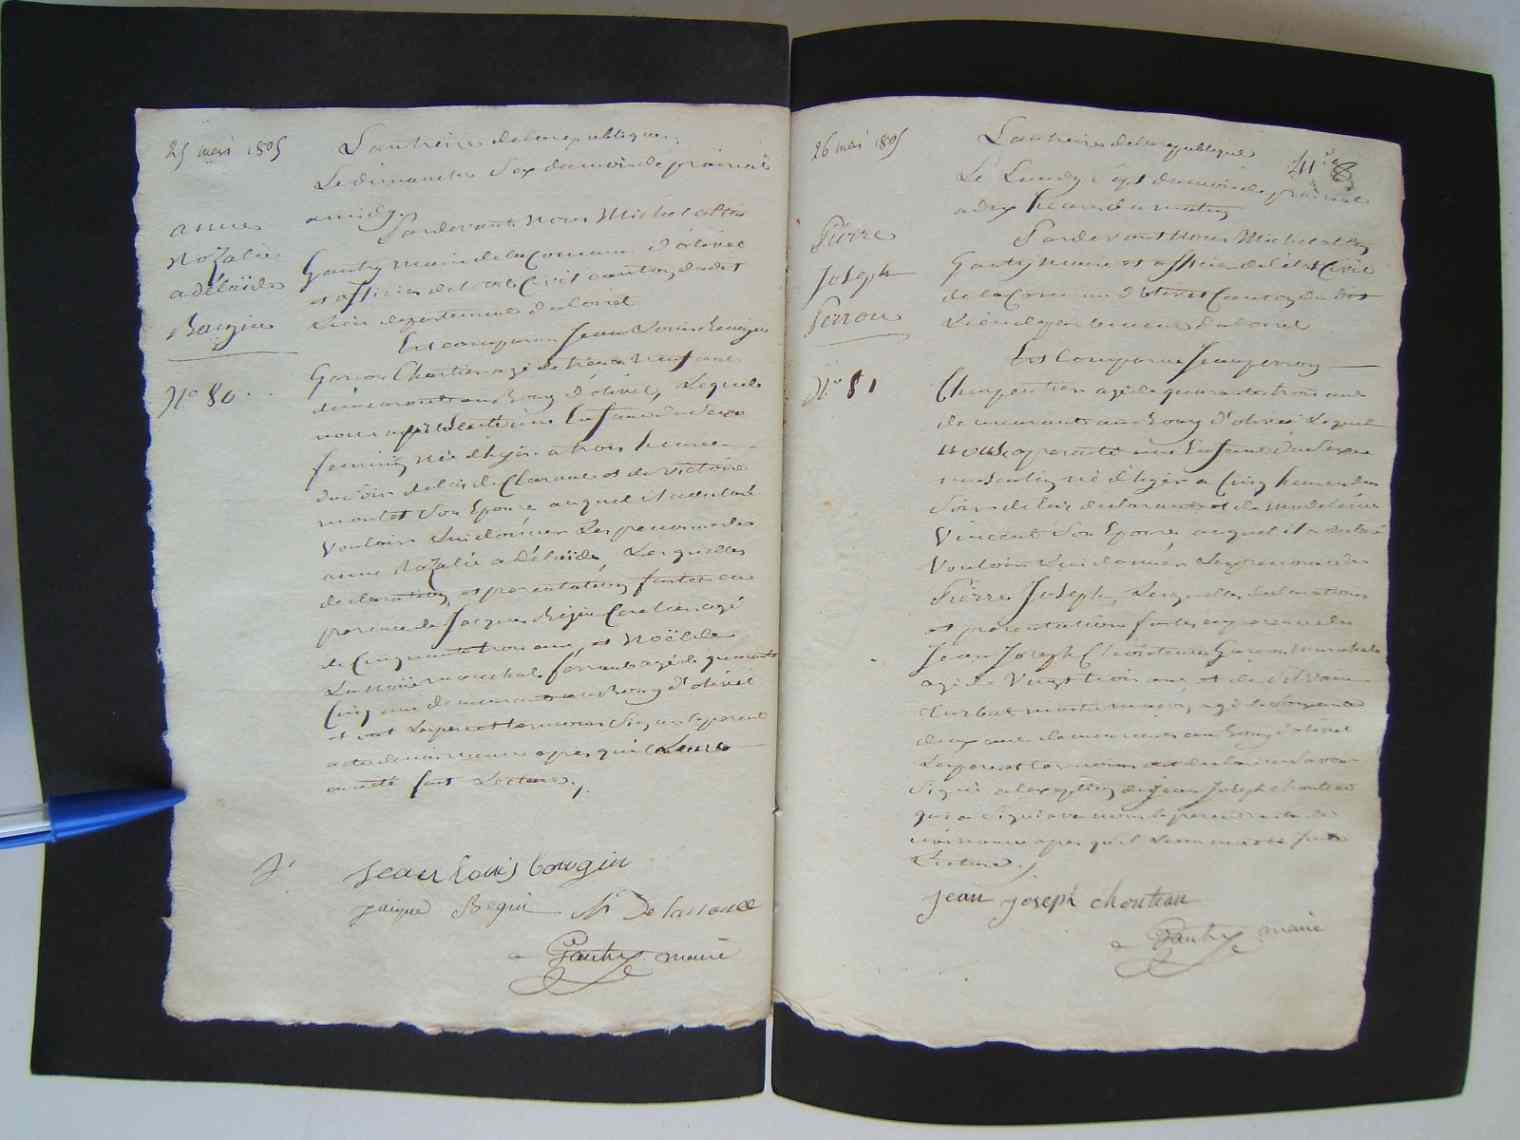 25 mai 1805
anne
Rozalie
adélaïde
Bougin
N° 80
L'an treize de la republique
Le dimanche Six du mois de prairial
a midy
Pardevant Nous Michel
Gautry Maire de la Commune d'olivet
et officier de l'etat Civil canton dudit
Lieu departement du loiret
Est comparu Jean Louis Bougin
Garçon Chartier agé de trente neuf ans
demeurant au Bourg d'olivet, Lequel
nous a présenté une Enfant du Sexe
feminin née d'hyer a trois heures
du Soir de lui declarant et de victoire
montet Son Epouse auquel il a declaré
Vouloir Lui donner Les prenoms de
anne Rozalie adélaïde, Lesquelles
declaration et presentation faites en
presence de Jacques Begin agé
de Cinquante trois ans et Noël de
Lanoüe marechal ferrant agé de quarante
Cinq ans demeurant au Bourg d'olivet
et ont Les pere et temoins Signé le present
acte de naissance apres qu'il Leur
en a été fait Lecture.
Jean louis bougin
jaique Begin N De lanoue
Gautry maire
26 mai 1805
Pierre
Joseph
Perron
N° 81
L'an treize de la republique
Le Lundy Sept du mois de prairial
a dix heures du matin
Pardevant Nous Michel
Gautry maire et officier de l'état Civil
de la Commune d'olivet Canton du dit
Lieu departement du loiret
Est Comparu Jean perron
Charpentier agé de quarante trois ans
demeurant au Bourg d'olivet Lequel
nous a presenté un Enfant du Sexe
masculin né d'hyer a Cinq heures du
Soir de lui declarant et de madeleine
Vincent Son Epouse auquel il a declaré
Vouloir Lui donner Les prenoms de
Pierre Joseph, Lesquelles declaration
et presentation faites en presence de
Jean Joseph Chouteau Garçon
agé de Vingt trois ans et de Silvain
agé de Soixante
deux ans demeurant au Bourg d'olivet
Les pere et temoins ont declaré ne Savoir
Signé a l'exception de Jean Joseph chouteau
qui a Signé avec nous le present acte de
naissance apres qu'il Leur en a été fait
Lecture.
jean joseph chouteau
Gautry maire